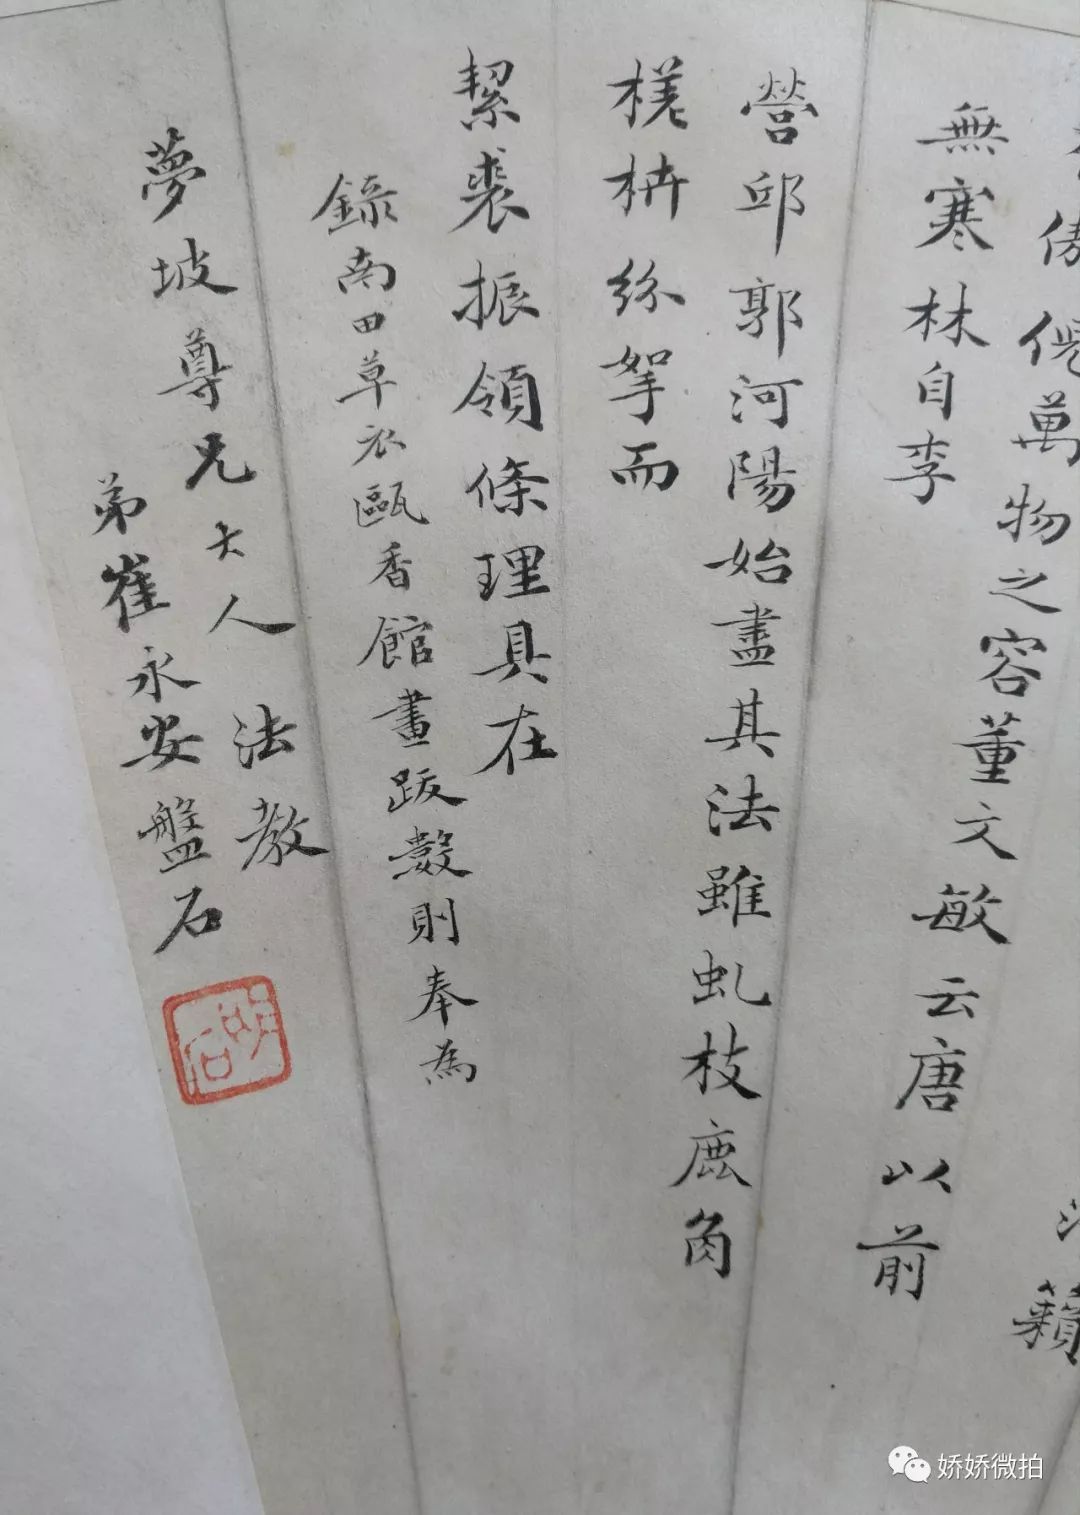 傲倪萬物之容董文敏云唐以前
無寒林自李
營邱郭河陽始盡其法雖虬枝鹿角
槎枿紛挐而
絜裘振領條理具在
錄南田草衣甌香館畫跋數則奉為
夢坡尊兄大人法教
弟崔永安盤石
娇娇微拍